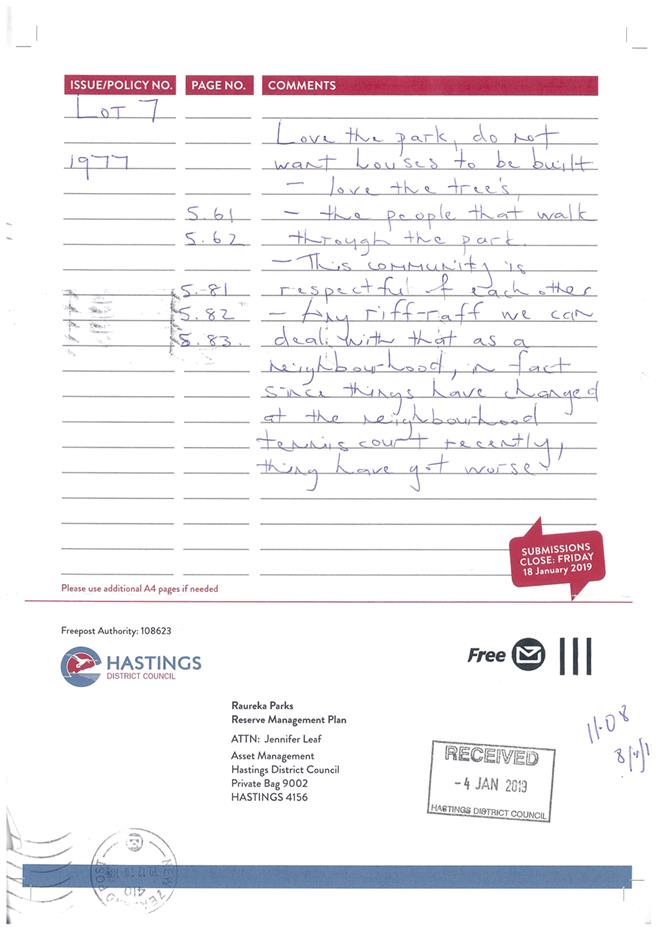 ISSUE/POLICY NO. PAGE NO. COMMENTS
LOT 7
Love the park, do not
1977 want houses to be built
- love the tree's,
5.61 - the people that walk
5.62 through the park.
- This community is
5.81 respectful of each other
5.82 - Any riff-raff we can
5.83. deal with that as a
neighbourhood, in fact
since things have changed
at the neighbourhood
tennis court recently,
thing have got worse.
SUBMISSIONS
CLOSE: FRIDAY
18 January 2019
Please use additional A4 pages if needed
Freepost Authority: 108623
HASTINGS
DISTRICT COUNCIL
Free
Raureka Parks
Reserve Management Plan
ATTN: Jennifer Leaf
Asset Management
Hastings District Council
Private Bag 9002
HASTINGS 4156
11.08
RECEIVED
-4 JAN 2019
HASTINGS DISTRICT COUNCIL